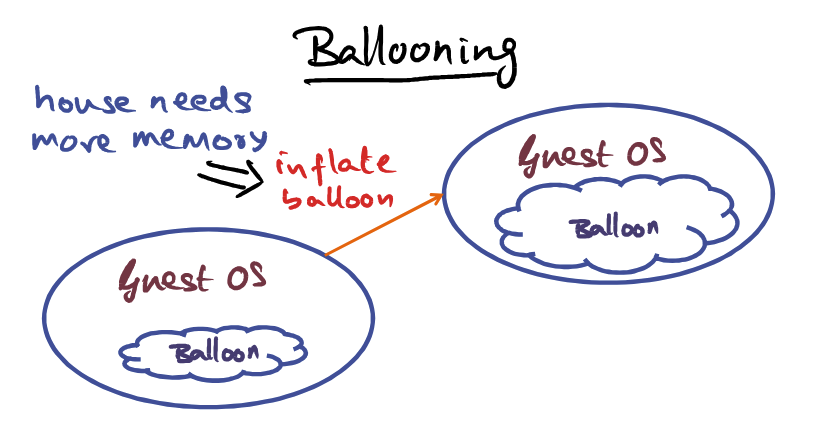 Ballooning
house needs
more memory
inflate
balloon
Guest OS
Balloon
Guest OS
Balloon